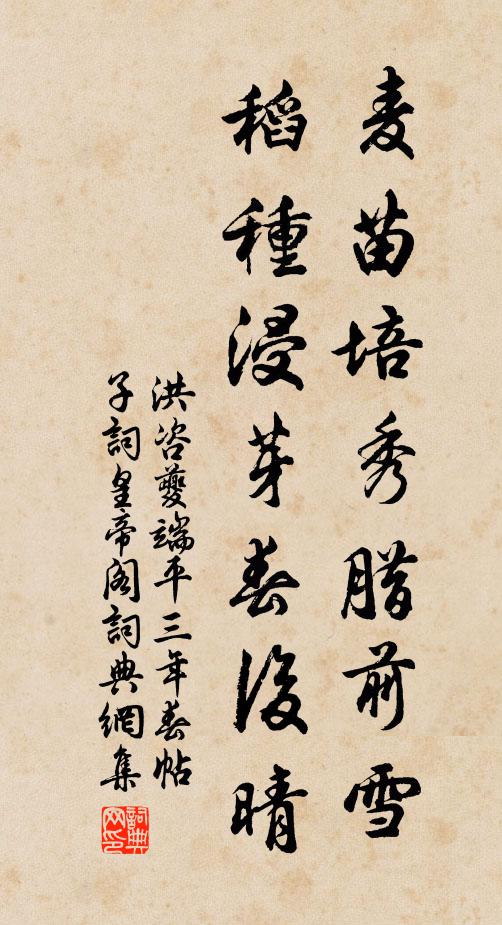 麦苗培秀腊前雪
稻種浸芽春後晴
洪咨夔端平三年春帖
子詞皇帝阁詞典網集
詞典网印